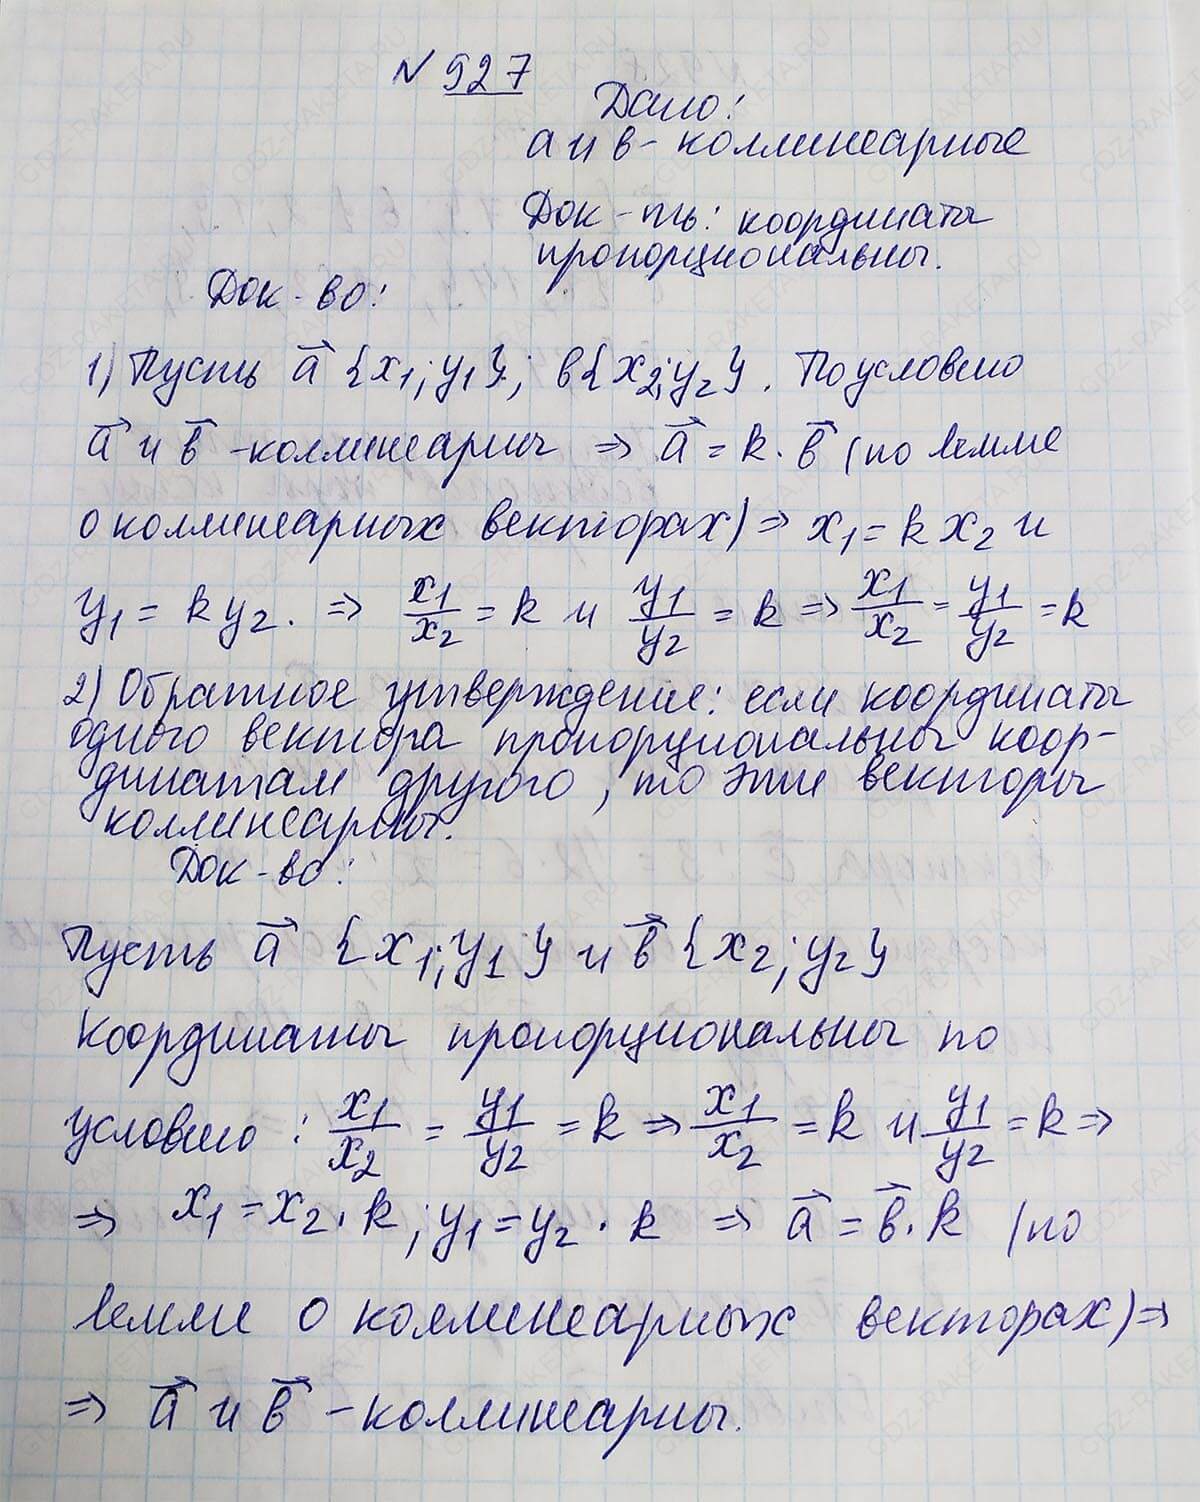 № 927
Дано:
a и в - коллинеарные
Док-ть: координаты
пропорциональны.
Док-во:
1) Пусть a⃗ {x₁; y₁}; в{x₂; y₂}. По условию
a⃗ и в⃗ - коллинеарны ⇒ a⃗ = k · в⃗ (по лемме
о коллинеарных векторах) ⇒ x₁ = k x₂ и
y₁ = k y₂. ⇒ x₁/x₂ = k и y₁/y₂ = k ⇒ x₁/x₂ = y₁/y₂ = k
2) Обратное утверждение: если координаты
одного вектора пропорциональны коор-
динатам другого, то эти векторы
коллинеарны.
Док-во:
Пусть a⃗ {x₁; y₁} и в⃗ {x₂; y₂}
координаты пропорциональны по
условию: x₁/x₂ = y₁/y₂ = k ⇒ x₁/x₂ = k и y₁/y₂ = k ⇒
⇒ x₁ = x₂ · k; y₁ = y₂ · k ⇒ a⃗ = в⃗ · k (по
лемме о коллинеарных векторах) ⇒
⇒ a⃗ и в⃗ - коллинеарны.
GDZ-RAKETA.RU